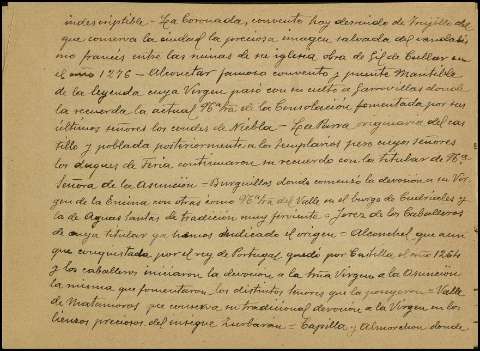 indescriptible - La Coronada, convento hoy desnudo de Trujillo del
que conserva la ciudad la preciosa imagen salvada del vandalis
mo francés entre las ruinas de su iglesia obra de Gil de Cuellar en
el año 1276 - Alconetar famosa convento y puente Mantible
de la leyenda cuya Virgen pasó con su culto a Garrovillas donde
la recuerda la actual Nª Srª de la Consolación fomentada por sus
últimos señores los condes de Niebla - La Parra originaria del cas
tillo y poblada posteriormente a los templarios pero cuyos señores
los duques de Feria continuaron su recuerdo con la titular de Nª
Señora de la Asunción = Burguillos donde comenzó la devoción a su Vir
gen de la Encina con otras como Nª Srª del Valle en el burgo de y
la de Aguas Santas de tradición muy ferviente = Jerez de los Caballeros
de cuya titular ya hemos indicado el origen = Alconchel que aun
que conquistada por el rey de Portugal quedó por Castilla el año 1264
y los caballeros iniciaron la devoción a la Virgen de la Asunción
la misma que fomentaron los distintos señores que la poseyeron = Valle
de Matamoros que conserva su tradicional devoción a la Virgen en los
lienzos preciosos del insigne Zurbarán = Capilla y Almorchon donde